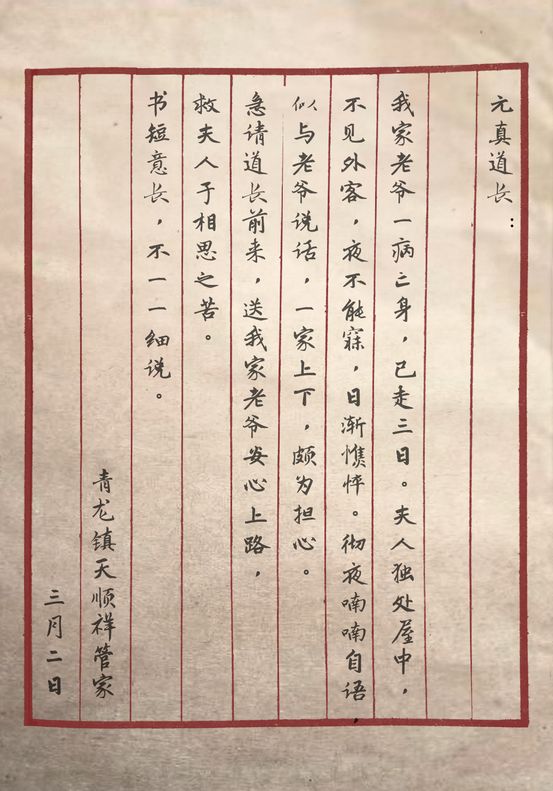 元真道长：
我家老爷一病亡身，已走三日。夫人独处屋中，
不见外客，夜不能寐，日渐憔悴。彻夜喃喃自语，
似与老爷说话，一家上下，颇为担心。
急请道长前来，送我家老爷安心上路，
救夫人于相思之苦。
书短意长，不一一细说。
青龙镇天顺祥管家
三月二日